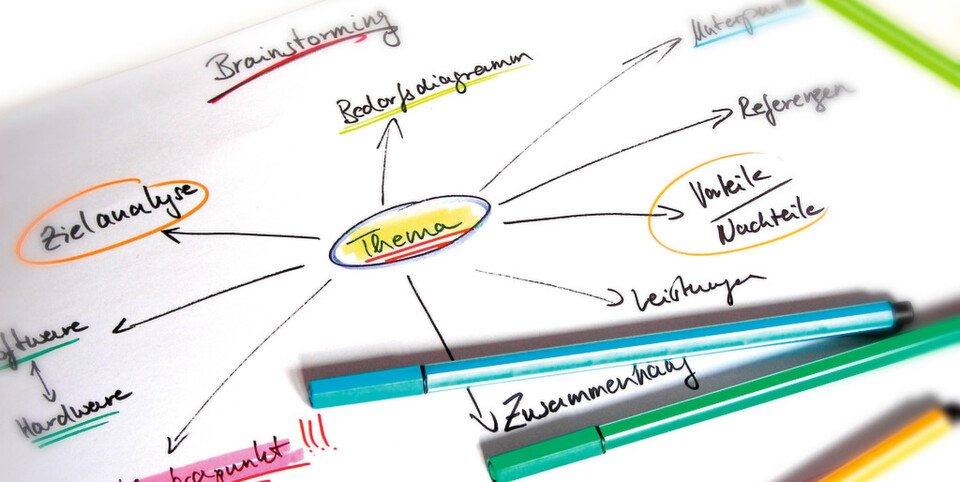 Brainstorming
Bedarfsdiagramm
Referenzen
Zielanalyse
Thema
Vorteile
Nachteile
Leistungen
Hardware
Zusammenhang
!!!